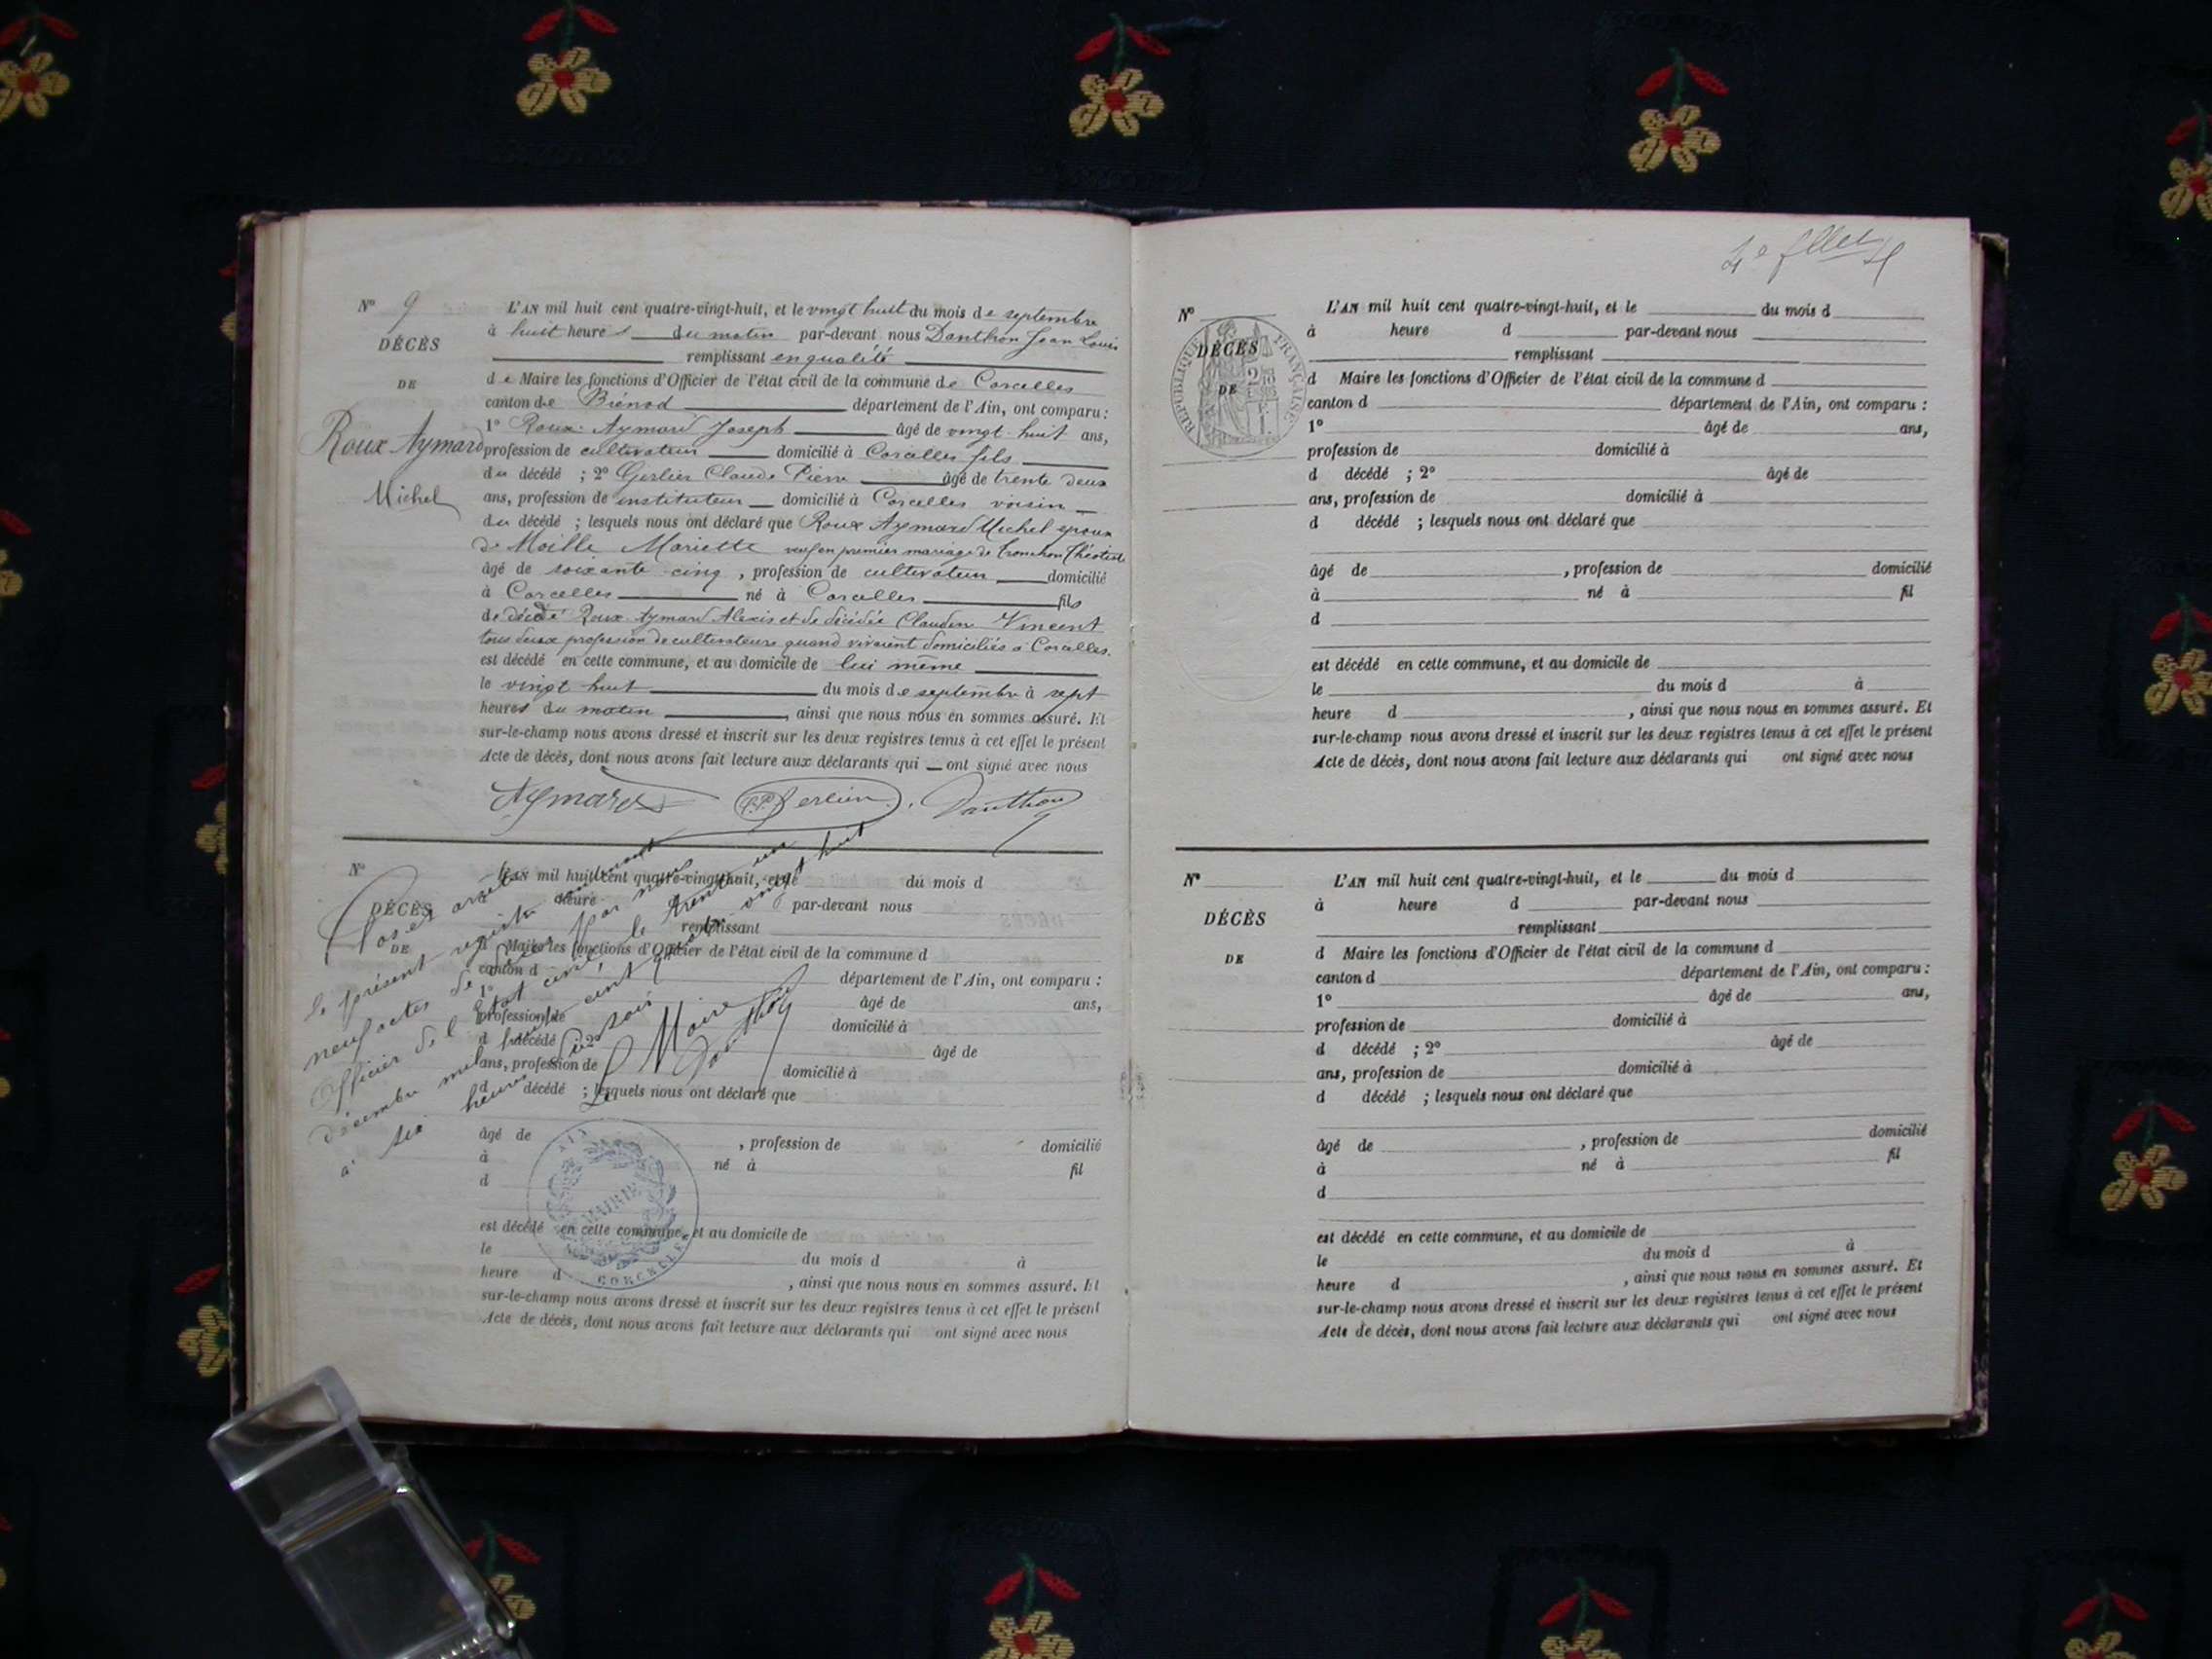 N° 9
DÉCÈS
DE
Roux Aymard
Michel
L'AN mil huit cent quatre-vingt-huit, et le vingt huit du mois de septembre
à huit heures du matin par-devant nous Danthon Jean Louis
remplissant en qualité
de Maire les fonctions d'Officier de l'état civil de la commune de Corcelles
canton de Brénod département de l'Ain, ont comparu :
1° Roux Aymard Joseph âgé de vingt huit ans,
profession de cultivateur domicilié à Corcelles fils
du décédé ; 2° Gerlier Claude Pierre âgé de trente deux
ans, profession de instituteur domicilié à Corcelles voisin
du décédé ; lesquels nous ont déclaré que Roux Aymard Michel époux
de Moille Mariette veuf en premier mariage de
âgé de soixante cinq, profession de cultivateur domicilié
à Corcelles né à Corcelles fils
de décédé Roux Aymard Alexis et de décédée Claudine Vincent
tous deux profession de cultivateurs quand vivaient domiciliés à Corcelles.
est décédé en cette commune, et au domicile de lui même
le vingt huit du mois de septembre à sept
heures du matin, ainsi que nous nous en sommes assuré. Et
sur-le-champ nous avons dressé et inscrit sur les deux registres tenus à cet effet le présent
Acte de décès, dont nous avons fait lecture aux déclarants qui ont signé avec nous
Aymard C.P. Gerlier Danthon
N°
DÉCÈS
DE
L'AN mil huit cent quatre-vingt-huit, et le du mois d
à heure par-devant nous
remplissant
d Maire les fonctions d'Officier de l'état civil de la commune d
canton d département de l'Ain, ont comparu :
1° âgé de ans,
profession de domicilié à
d décédé ; 2° âgé de
ans, profession de domicilié à
d décédé ; lesquels nous ont déclaré que
âgé de , profession de domicilié
à né à fil
d
est décédé en cette commune, et au domicile de
le du mois d à
heure d , ainsi que nous nous en sommes assuré. Et
sur-le-champ nous avons dressé et inscrit sur les deux registres tenus à cet effet le présent
Acte de décès, dont nous avons fait lecture aux déclarants qui ont signé avec nous
Clos et arrêté
le présent registre contenant
neuf actes de décès par nous
Officier de l'Etat civil, le trente un
décembre mil huit cent quatre vingt huit
à six heures du soir
Le Maire
Danthon
AIN
MAIRIE
CORCELLES
4e fllet
N°
DÉCÈS
DE
RÉPUBLIQUE FRANÇAISE
L'AN mil huit cent quatre-vingt-huit, et le du mois d
à heure d par-devant nous
remplissant
d Maire les fonctions d'Officier de l'état civil de la commune d
canton d département de l'Ain, ont comparu :
1° âgé de ans,
profession de domicilié à
d décédé ; 2° âgé de
ans, profession de domicilié à
d décédé ; lesquels nous ont déclaré que
âgé de , profession de domicilié
à né à fil
d
est décédé en cette commune, et au domicile de
le du mois d à
heure d , ainsi que nous nous en sommes assuré. Et
sur-le-champ nous avons dressé et inscrit sur les deux registres tenus à cet effet le présent
Acte de décès, dont nous avons fait lecture aux déclarants qui ont signé avec nous
N°
DÉCÈS
DE
L'AN mil huit cent quatre-vingt-huit, et le du mois d
à heure d par-devant nous
remplissant
d Maire les fonctions d'Officier de l'état civil de la commune d
canton d département de l'Ain, ont comparu :
1° âgé de ans,
profession de domicilié à
d décédé ; 2° âgé de
ans, profession de domicilié à
d décédé ; lesquels nous ont déclaré que
âgé de , profession de domicilié
à né à fil
d
est décédé en cette commune, et au domicile de
le du mois d à
heure d , ainsi que nous nous en sommes assuré. Et
sur-le-champ nous avons dressé et inscrit sur les deux registres tenus à cet effet le présent
Acte de décès, dont nous avons fait lecture aux déclarants qui ont signé avec nous